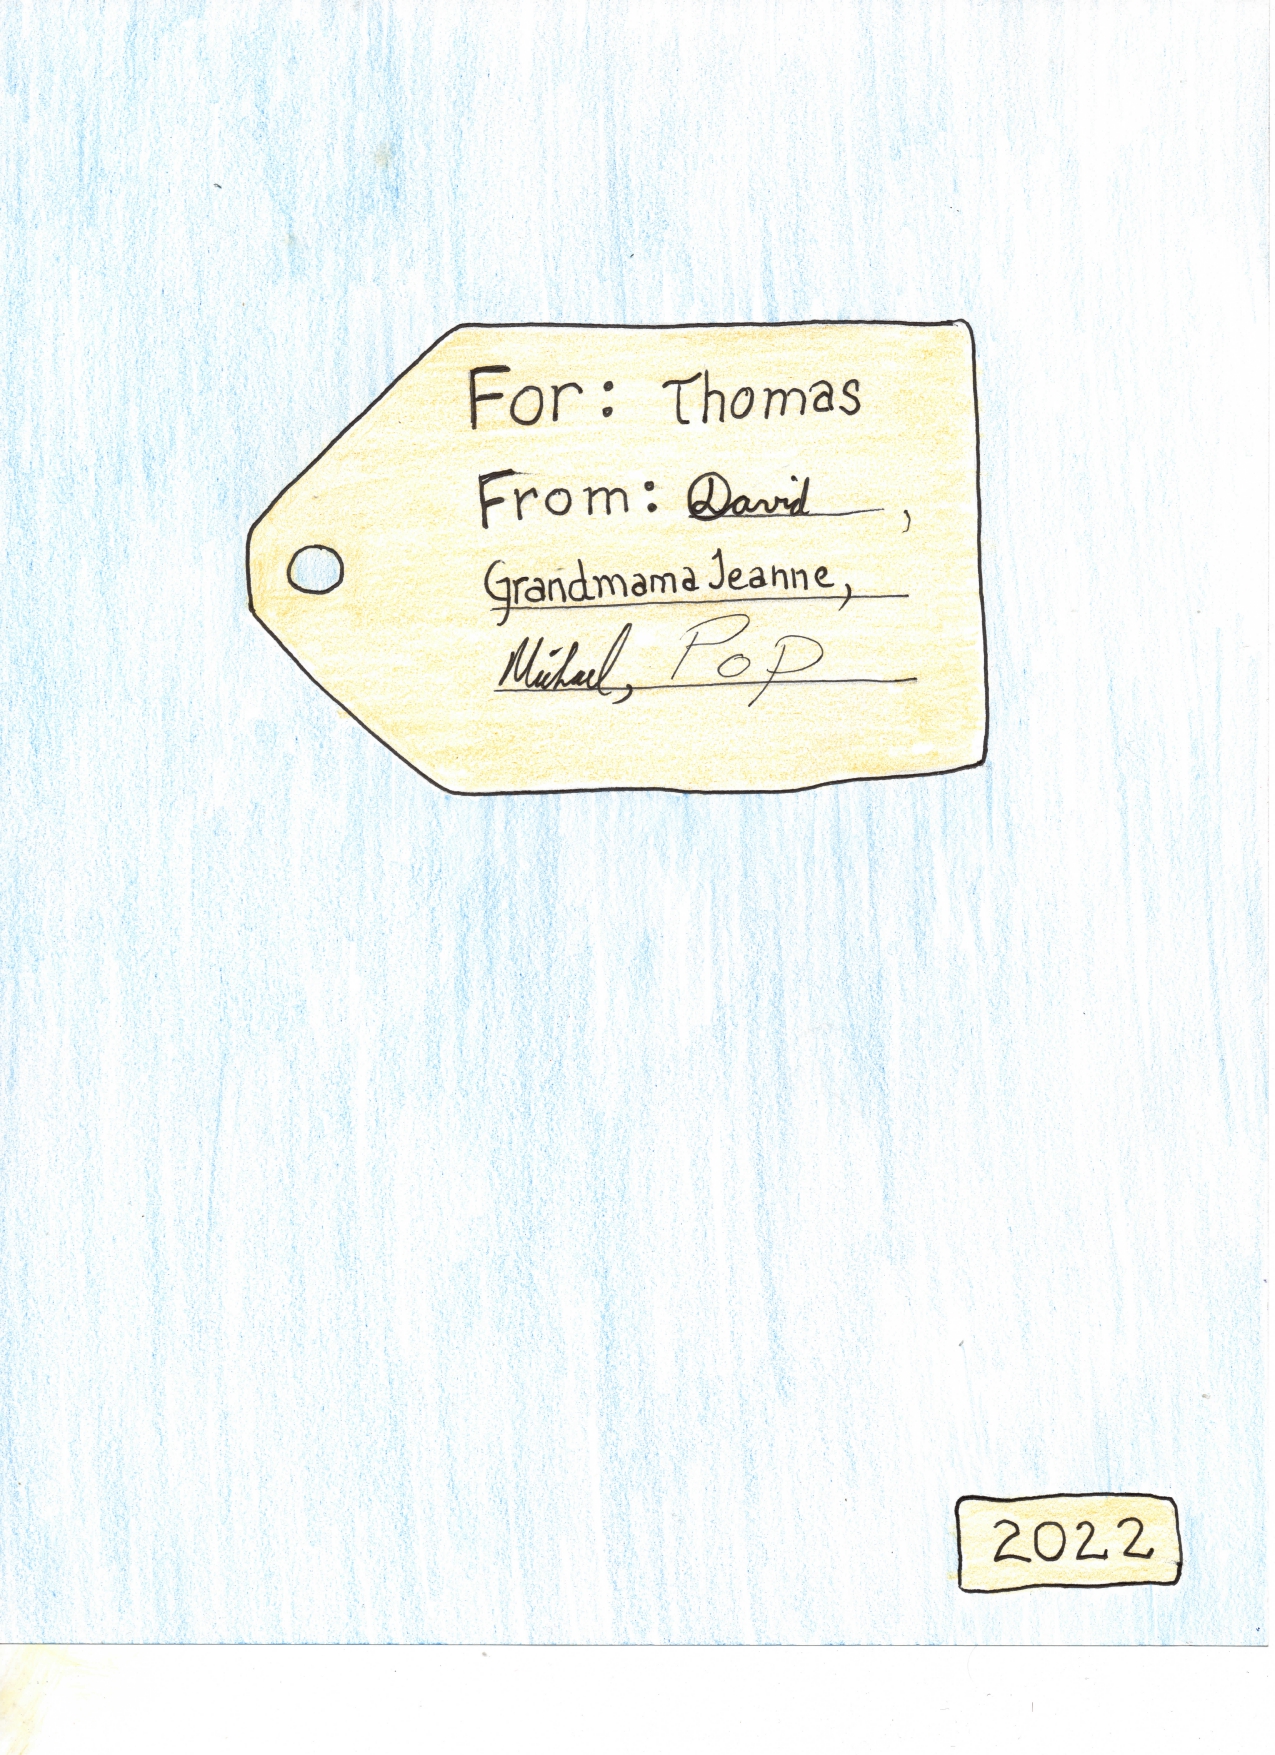 For: Thomas
From: David,
Grandmama Jeanne,
Michael, Pop
2022